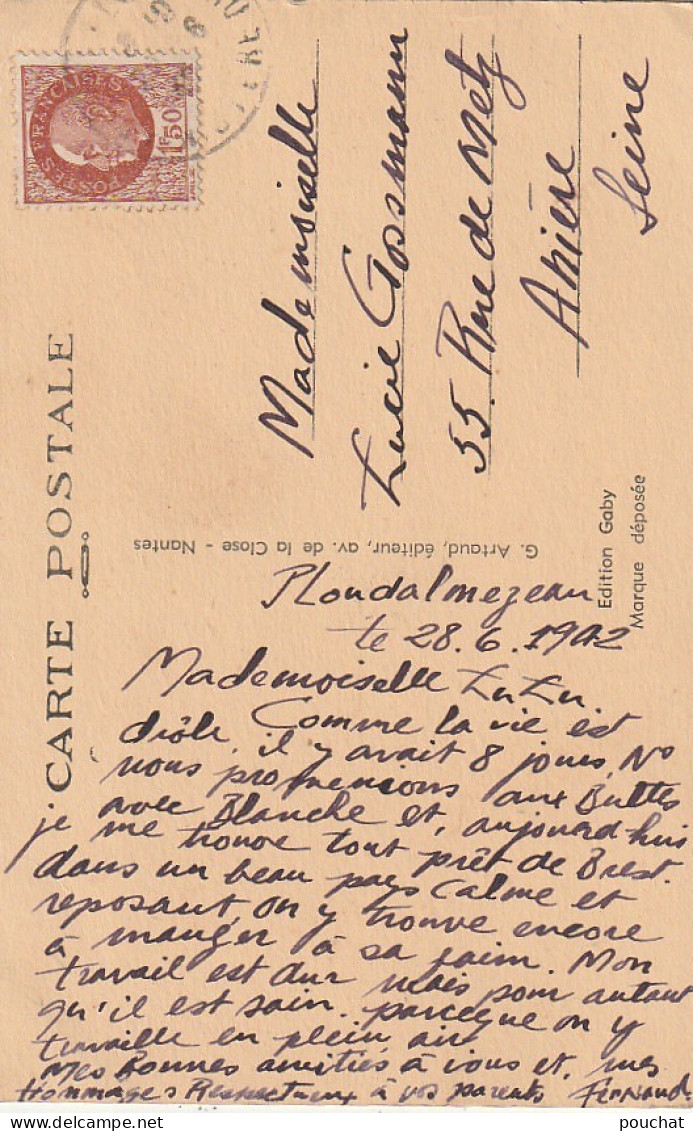 POSTES FRANÇAISES
1F50
CARTE POSTALE
G. Artaud, éditeur, av. de la Close - Nantes
Edition Gaby
Marque déposée
Mademoiselle
Lucie Gosmann
55. Rue de Metz
Anière
Seine
Ploudalmezeau
le 28.6.1942
Mademoiselle LuLu.
Comme la vie est
drôle, il y avait 8 jours, No
nous promenions aux Buttes
avec Blanche et, aujourd-hui
je me trouve tout prêt de Brest.
dans un beau pays Calme et
reposant, on y trouve encore
à manger à sa faim. Mon
travail est dur mais pour autant
qu'il est sain. parceque on y
travaille en plein air
Mes Bonnes amitiés à vous et, mes
Hommages Respectueux à vos parents Fernand
pouchat